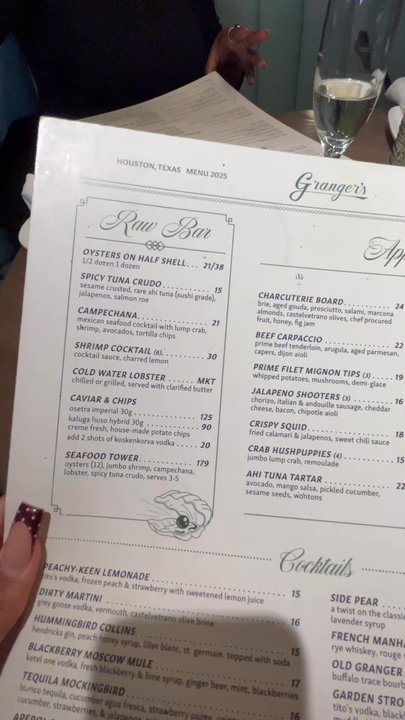 HOUSTON, TEXAS MENU 2025
Granger's
Raw Bar
OYSTERS ON HALF SHELL... 21/38
1/2 dozen 1 dozen
SPICY TUNA CRUDO ........ 15
sesame crusted, rare ahi tuna (sushi grade),
jalapenos, salmon roe
CAMPECHANA ................ 21
mexican seafood cocktail with lump crab,
shrimp, avocados, tortilla chips
SHRIMP COCKTAIL (6) ........ 30
cocktail sauce, charred lemon
COLD WATER LOBSTER ...... MKT
chilled or grilled, served with clarified butter
CAVIAR & CHIPS
osetra imperial 30g ............ 125
kaluga huso hybrid 30g ......... 90
creme fresh, house-made potato chips
add 2 shots of koskenkorva vodka ... 20
SEAFOOD TOWER ............ 179
oysters (12), jumbo shrimp, campechana,
lobster, spicy tuna crudo, serves 3-5
App
CHARCUTERIE BOARD........... 24
brie, aged gouda, prosciutto, salami, marcona
almonds, castelvetrano olives, chef procured
fruit, honey, fig jam
BEEF CARPACCIO .............. 22
prime beef tenderloin, arugula, aged parmesan,
capers, dijon aioli
PRIME FILET MIGNON TIPS (3) ... 19
whipped potatoes, mushrooms, demi-glace
JALAPENO SHOOTERS (3) ....... 16
chorizo, italian & andouille sausage, cheddar
cheese, bacon, chipotle aioli
CRISPY SQUID ................. 18
fried calamari & jalapenos, sweet chili sauce
CRAB HUSHPUPPIES (4) ......... 15
jumbo lump crab, remoulade
AHI TUNA TARTAR ............. 22
avocado, mango salsa, pickled cucumber,
sesame seeds, wontons
Cocktails
PEACHY-KEEN LEMONADE ............ 15
tito's vodka, frozen peach & strawberry with sweetened lemon juice
DIRTY MARTINI ............ 16
grey goose vodka, vermouth, castelvetrano olive brine
HUMMINGBIRD COLLINS ............ 15
hendricks gin, peach honey syrup, lillet blanc, st. germain, topped with soda
BLACKBERRY MOSCOW MULE ............ 17
ketel one vodka, fresh blackberry & lime syrup, ginger beer, mint, blackberries
TEQUILA MOCKINGBIRD ............ 16
blanco tequila, cucumber agua fresca, strawberry puree,
cucumber, strawberries, & jalapeno
SIDE PEAR
a twist on the classic
lavender syrup
FRENCH MANHA
rye whiskey, rouge
OLD GRANGER
buffalo trace bourb
GARDEN STRO
tito's vodka, blas